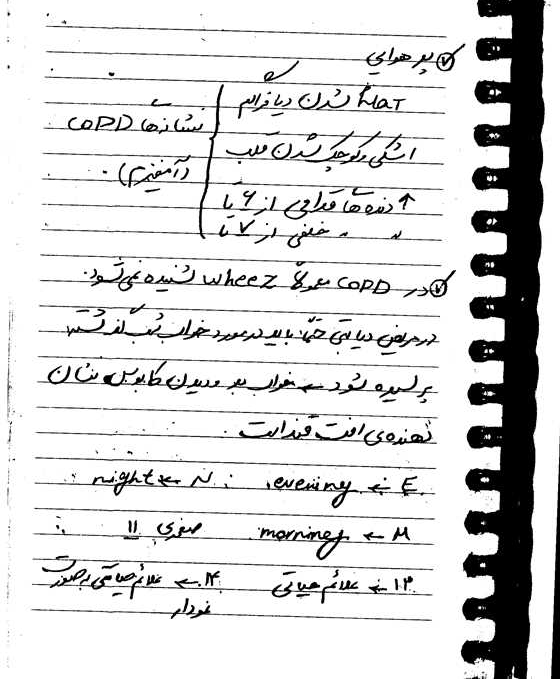 پر هوایی
Flat شدن دیافراگم
اشکی و کوچک شدن قلب
↑ دنده ها قدامی از ۶ تا
〃 〃 خلفی از ۷ تا
نشانه‌ها COPD
(آمفیزم).
در COPD معمولاً wheez شنیده نمی‌شود.
در مریض دیابتی حتماً باید در مورد خواب شب گذشته
پرسیده شود ← خواب بد و دیدن کابوس نشان
دهنده‌ی افت قند است.
E ← evening. N ← night
M ← morning صفری 11
13 ← علائم حیاتی 14 ← علائم حیاتی بصورت
نمودار